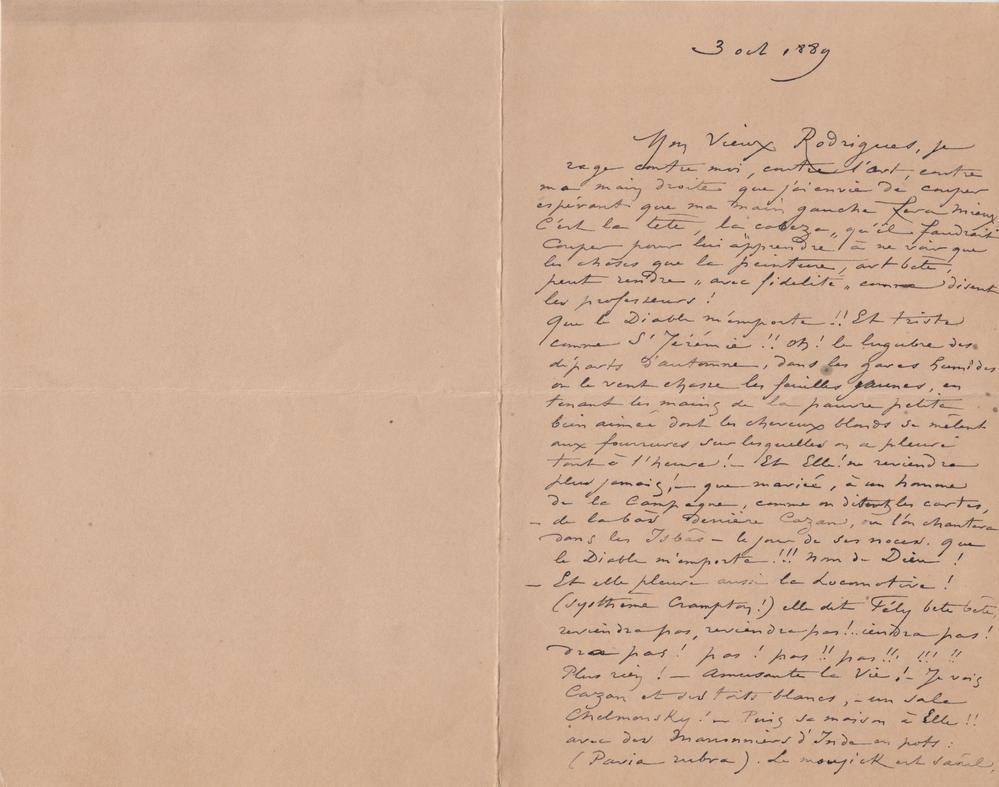 3 oct 1889
Mon Vieux Rodrigues, je
rage contre moi, contre l'art, contre
ma main droite que j'ai envie de couper
espérant que ma main gauche fera mieux
C'est la tête, "la cabeza" qu'il faudrait
couper pour lui apprendre à ne voir que
les choses que la peinture, art bête,
peut rendre "avec fidelité" comme disent
les professeurs !
Que le Diable m'emporte !! Et triste
comme St Jérémie !! Oh ! le lugubre des
départs d'automne, dans les gares humides
où le vent chasse les feuilles jaunes, en
tenant les mains de la pauvre petite
bien aimée dont les cheveux blonds se mêlent
aux fourrures sur lesquelles on a pleuré
tout à l'heure ! — Et Elle ! ne reviendra
plus jamais, ! — que mariée, à un homme
de la Campagne, comme on dit les cartes,
— de la bàs derrière Cazan, où l'on chantera
dans les Isbas — le jour de ses noces. Que
le Diable m'emporte !!! nom de Dieu !
— Et elle pleure aussi la Locomotive !
(systhème Crampton !) elle dit Fély bete bête
reviendra pas, reviendra pas !.. iendra pas !
dra pas ! pas ! pas !! pas !!. !!! !!
Plus rien ! — Amusante la Vie ! — Je vois
Cazan et des toits blancs, — un sale
Chelmonsky ! — Puis sa maison à Elle !!
avec des Marronniers d'Inde en pots :
(Pavia rubra). Le moujick est